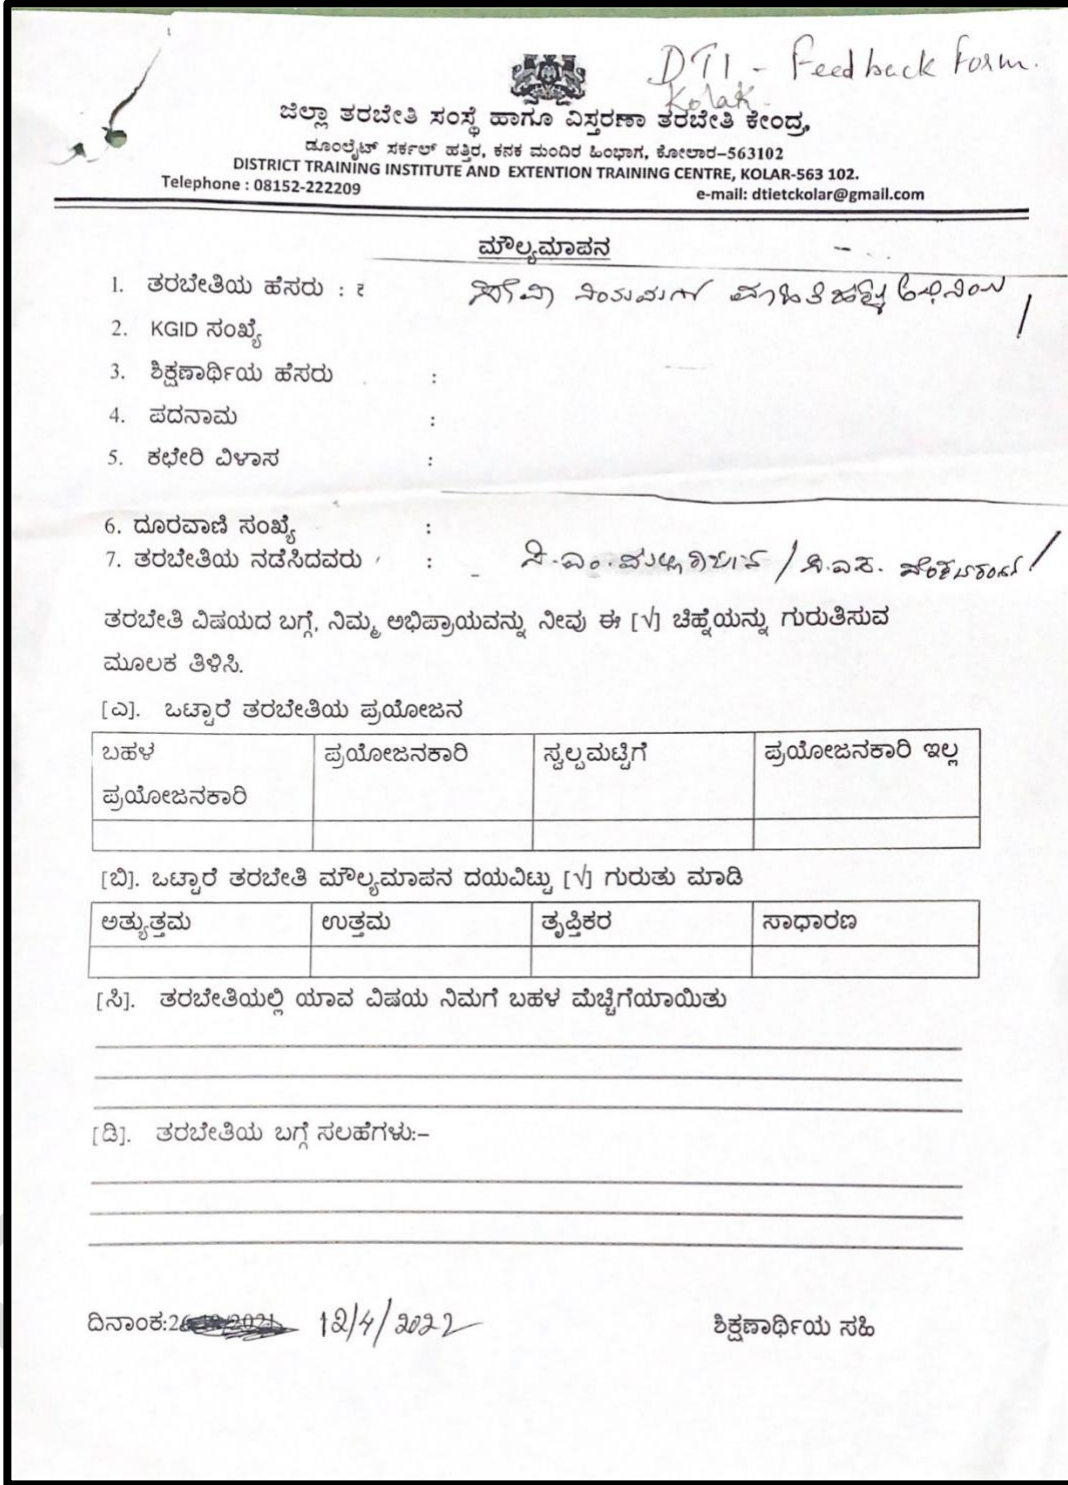 DTI - Feedback Form.
Kolar
ಜಿಲ್ಲಾ ತರಬೇತಿ ಸಂಸ್ಥೆ ಹಾಗೂ ವಿಸ್ತರಣಾ ತರಬೇತಿ ಕೇಂದ್ರ,
ಡೂಂಲೈಟ್ ಸರ್ಕಲ್ ಹತ್ತಿರ, ಕನಕ ಮಂದಿರ ಹಿಂಭಾಗ, ಕೋಲಾರ-563102
DISTRICT TRAINING INSTITUTE AND EXTENTION TRAINING CENTRE, KOLAR-563 102.
Telephone : 08152-222209 e-mail: dtietckolar@gmail.com
ಮೌಲ್ಯಮಾಪನ
1. ತರಬೇತಿಯ ಹೆಸರು :
2. KGID ಸಂಖ್ಯೆ
3. ಶಿಕ್ಷಣಾರ್ಥಿಯ ಹೆಸರು :
4. ಪದನಾಮ :
5. ಕಛೇರಿ ವಿಳಾಸ :
6. ದೂರವಾಣಿ ಸಂಖ್ಯೆ :
7. ತರಬೇತಿಯ ನಡೆಸಿದವರು :
ತರಬೇತಿ ವಿಷಯದ ಬಗ್ಗೆ, ನಿಮ್ಮ ಅಭಿಪ್ರಾಯವನ್ನು ನೀವು ಈ [√] ಚಿಹ್ನೆಯನ್ನು ಗುರುತಿಸುವ
ಮೂಲಕ ತಿಳಿಸಿ.
[ಎ]. ಒಟ್ಟಾರೆ ತರಬೇತಿಯ ಪ್ರಯೋಜನ
ಬಹಳ ಪ್ರಯೋಜನಕಾರಿ ಸ್ವಲ್ಪಮಟ್ಟಿಗೆ ಪ್ರಯೋಜನಕಾರಿ ಇಲ್ಲ
ಪ್ರಯೋಜನಕಾರಿ
[ಬಿ]. ಒಟ್ಟಾರೆ ತರಬೇತಿ ಮೌಲ್ಯಮಾಪನ ದಯವಿಟ್ಟು [√] ಗುರುತು ಮಾಡಿ
ಅತ್ಯುತ್ತಮ ಉತ್ತಮ ತೃಪ್ತಿಕರ ಸಾಧಾರಣ
[ಸಿ]. ತರಬೇತಿಯಲ್ಲಿ ಯಾವ ವಿಷಯ ನಿಮಗೆ ಬಹಳ ಮೆಚ್ಚಿಗೆಯಾಯಿತು
[ಡಿ]. ತರಬೇತಿಯ ಬಗ್ಗೆ ಸಲಹೆಗಳು:-
ದಿನಾಂಕ: 12/4/2022 ಶಿಕ್ಷಣಾರ್ಥಿಯ ಸಹಿ